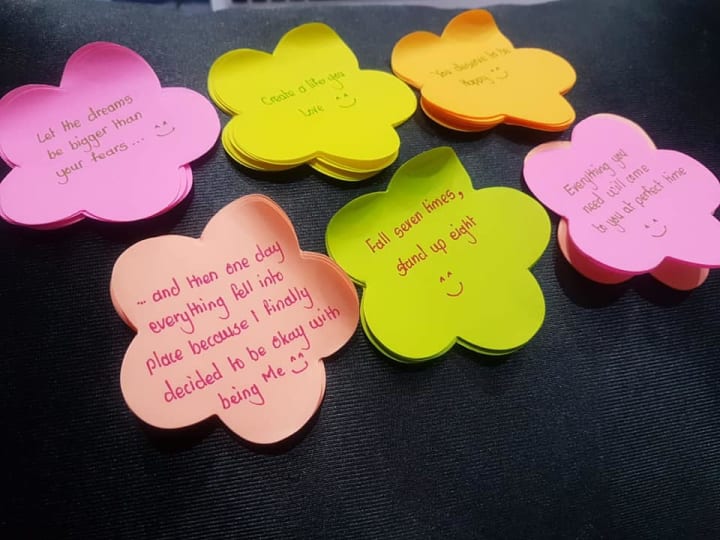 Let the dreams
be bigger than
your fears...
Create a life you
love
You deserve to be
Happy
Everything you
need will come
to you at perfect time
Fall seven times,
stand up eight
... and then one day
everything fell into
place because I finally
decided to be okay with
being Me